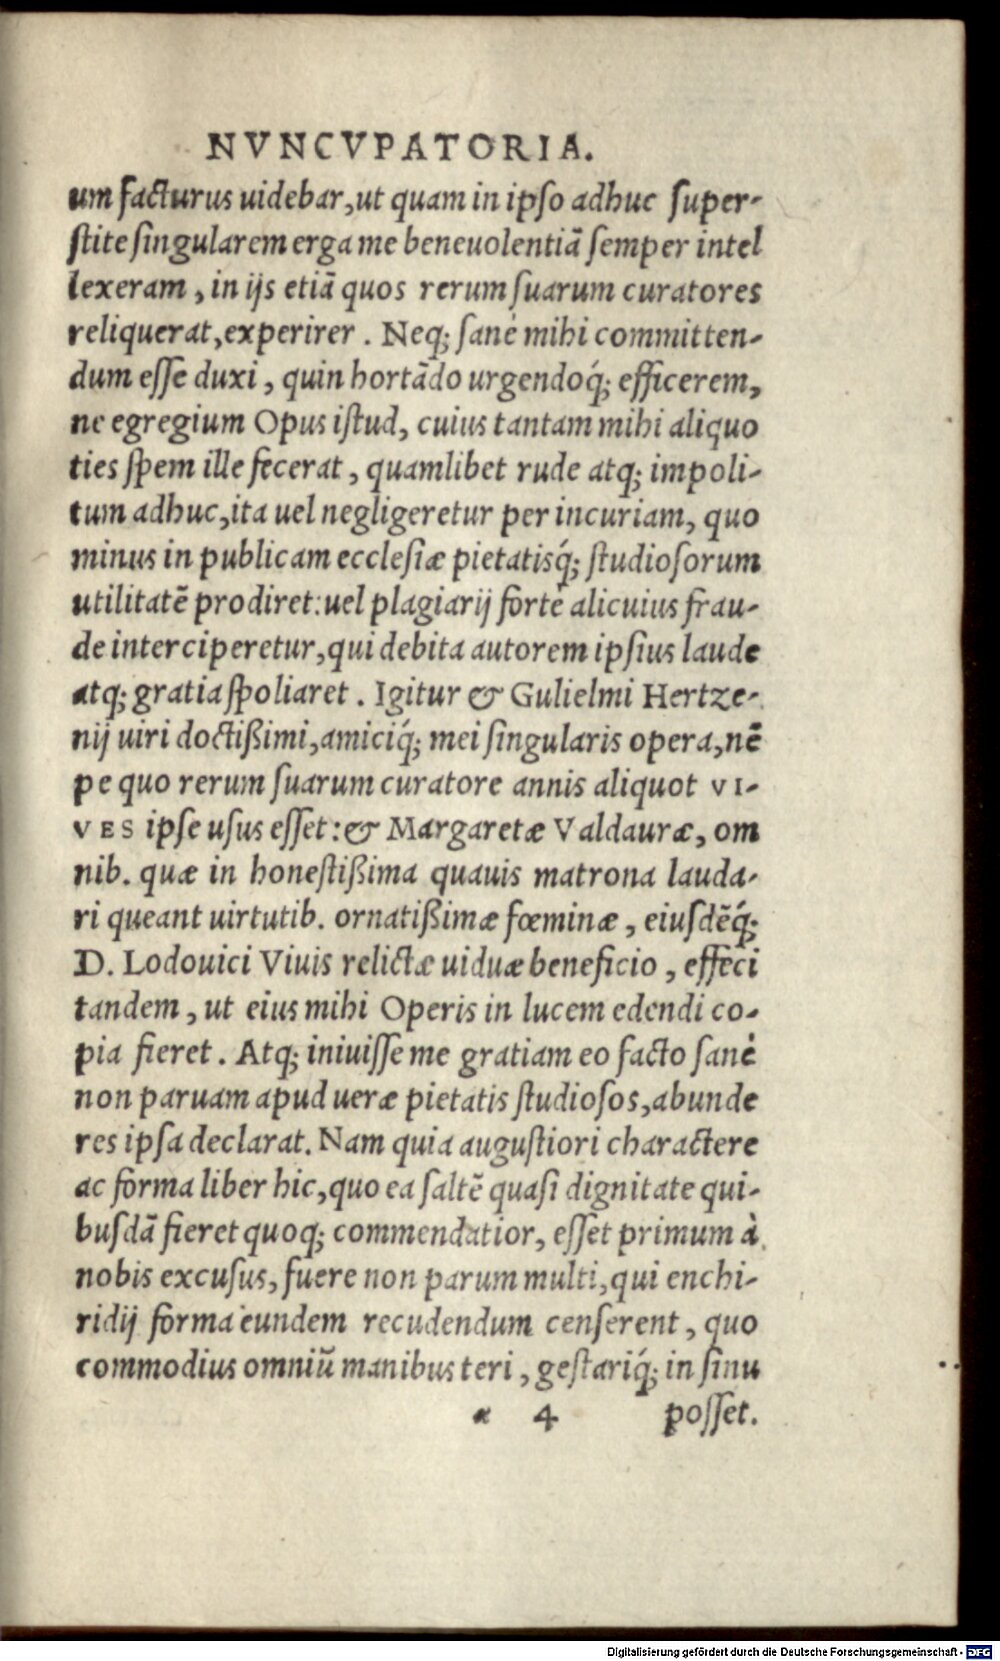 NVNCVPATORIA.
um facturus uidebar, ut quam in ipso adhuc super-
stite singularem erga me beneuolentiā semper intel
lexeram, in ijs etiā quos rerum suarum curatores
reliquerat, experirer. Neq; sanè mihi committen-
dum esse duxi, quin hortādo urgendoq́; efficerem,
ne egregium Opus istud, cuius tantam mihi aliquo
ties spem ille fecerat, quamlibet rude atq; impoli-
tum adhuc, ita uel negligeretur per incuriam, quo
minus in publicam ecclesiæ pietatisq́; studiosorum
utilitatē prodiret: uel plagiarij fortè alicuius frau-
de interciperetur, qui debita autorem ipsius laude
atq; gratia spoliaret. Igitur & Gulielmi Hertze-
nij uiri doctißimi, amiciq́; mei singularis opera, nē
pe quo rerum suarum curatore annis aliquot VI-
VES ipse usus esset: & Margaretæ Valdauræ, om
nib. quæ in honestißima quauis matrona lauda-
ri queant uirtutib. ornatißimæ fœminæ, eiusdēq́;
D. Lodouici Viuis relictæ uiduæ beneficio, effeci
tandem, ut eius mihi Operis in lucem edendi co-
pia fieret. Atq; iniuisse me gratiam eo facto sanè
non paruam apud ueræ pietatis studiosos, abunde
res ipsa declarat. Nam quia augustiori charactere
ac forma liber hic, quo ea saltē quasi dignitate qui-
busdā fieret quoq; commendatior, esset primum à
nobis excusus, fuere non parum multi, qui enchi-
ridij forma eundem recudendum censerent, quo
commodius omniū manibus teri, gestariq́; in sinu
α 4 posset.
Digitalisierung gefördert durch die Deutsche Forschungsgemeinschaft - DFG